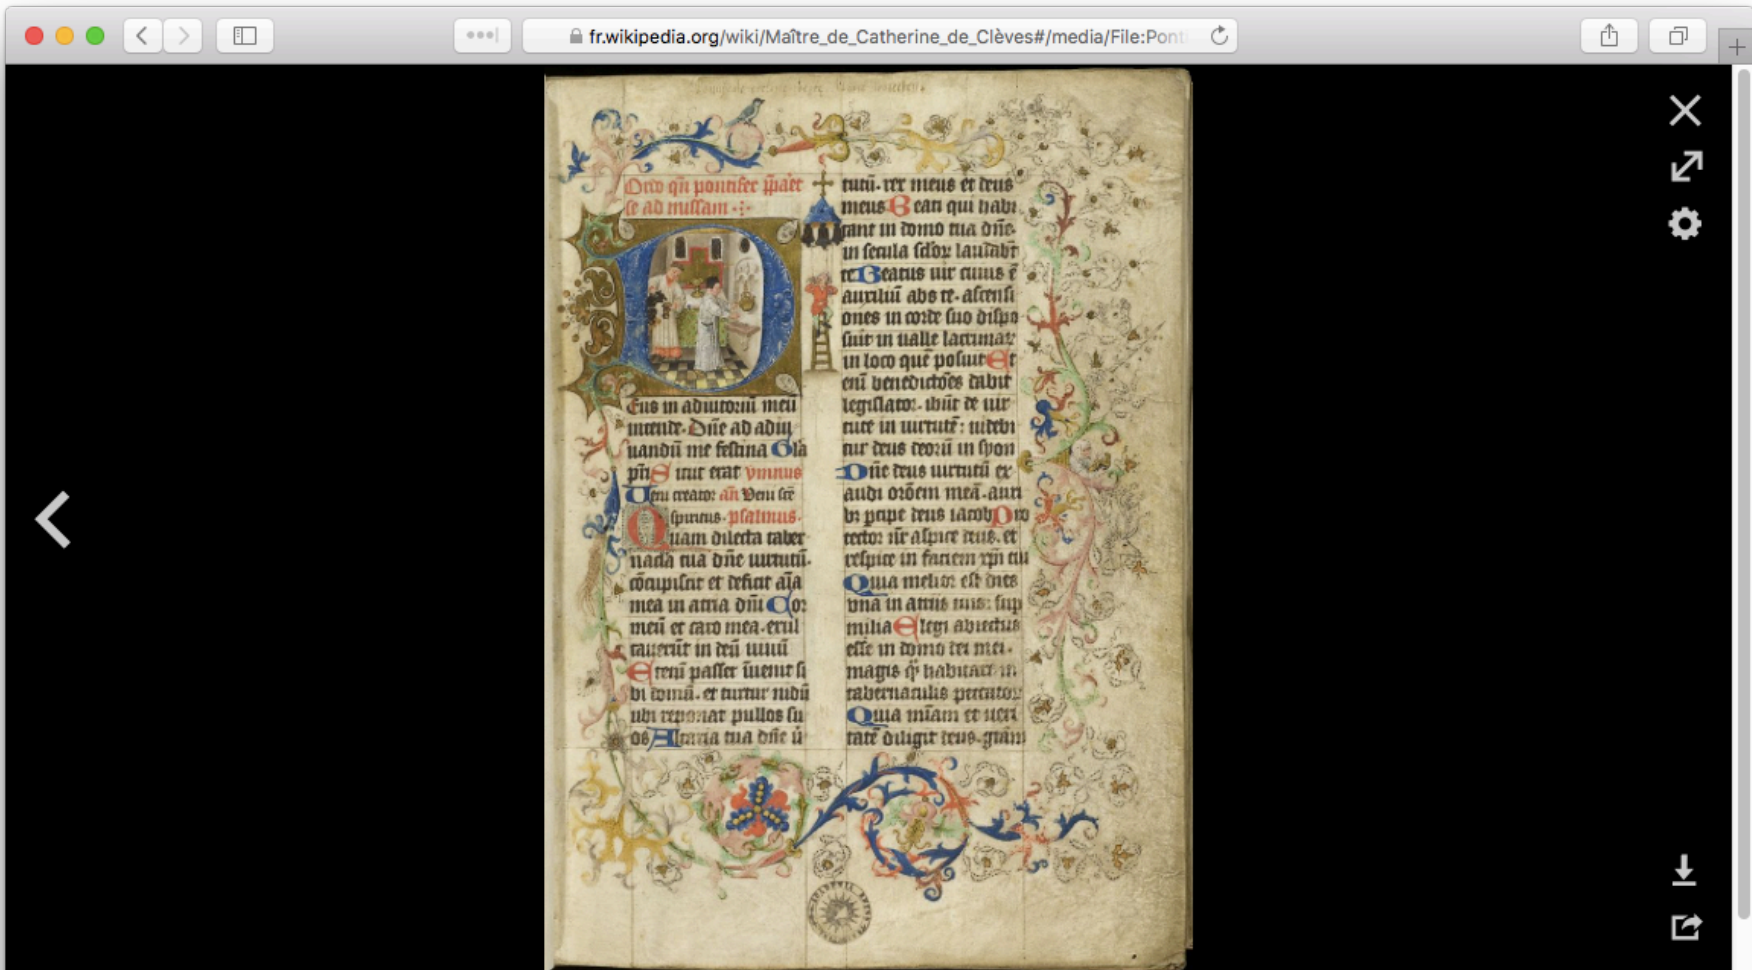 fr.wikipedia.org/wiki/Maître_de_Catherine_de_Clèves#/media/File:Pont
Ordo qn̄ pontifex p̄paret
se ad missam
Eus in adiutoriū meū
intende. Dn̄e ad adiu
uandū me festina Glā
pr̄i Sicut erat ymnus
Ueni creator an̄ Veni sc̄e
spiritus. psalmus.
Quam dilecta taber
nacla tua dn̄e uirtutū.
cōcupiscit et deficit aīa
mea in atria dn̄i Cor
meū et caro mea. exul
tauerūt in deū uiuū
Etenī passer īuenit si
bi domū. et turtur nidū
ubi reponat pullos su
os Altaria tua dn̄e ū
tutū. rex meus et deus
meus Beati qui habi
tant in domo tua dn̄e.
in secula sc̄lor laudabt̄
te Beatus uir cuius ē
auxiliū abs te. ascensi
ones in corde suo dispo
suit in ualle lacrimar
in loco quē posuit Et
enī benedictōes dabit
legislator. ibūt de uir
tute in uirtutē: uidebi
tur deus deorū in syon
Dn̄e deus uirtutū ex
audi orōem meā. auri
bȝ p̄cipe deus iacob Pro
tector nr̄ aspice deus. et
respice in faciem xp̄i tui
Quia melior est dies
vna in atriis tuis: sup
milia Elegi abiectus
esse in domo dei mei.
magis q̄ habitare in
tabernaculis peccator
Quia mīam et ueri
tatē diligit deus. grām